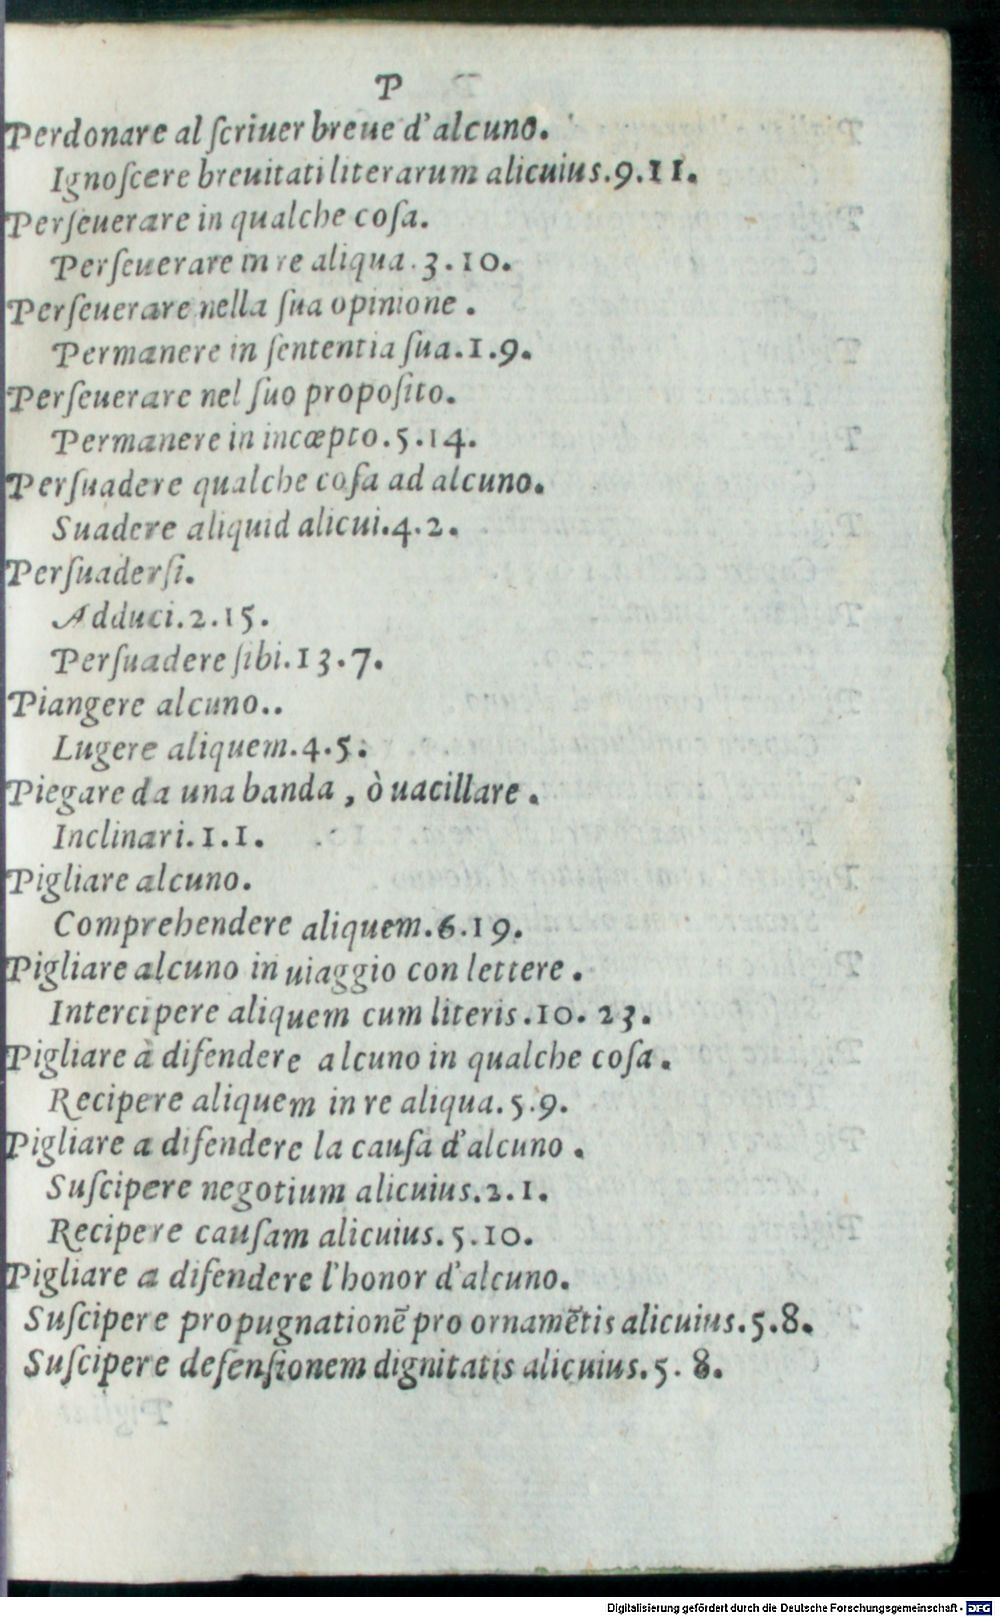 P
Perdonare al ſcriuer breue d'alcuno.
Ignoſcere breuitati literarum alicuius.9.11.
Perſeuerare in qualche coſa.
Perſeuerare in re aliqua.3.10.
Perſeuerare nella ſua opinione.
Permanere in ſententia ſua.1.9.
Perſeuerare nel ſuo propoſito.
Permanere in incœpto.5.14.
Perſuadere qualche coſa ad alcuno.
Suadere aliquid alicui.4.2.
Perſuaderſi.
Adduci.2.15.
Perſuadere ſibi.13.7.
Piangere alcuno..
Lugere aliquem.4.5.
Piegare da una banda, ò uacillare.
Inclinari.1.1.
Pigliare alcuno.
Comprehendere aliquem.6.19.
Pigliare alcuno in uiaggio con lettere.
Intercipere aliquem cum literis.10.23.
Pigliare à difendere alcuno in qualche coſa.
Recipere aliquem in re aliqua.5.9.
Pigliare a difendere la cauſa d'alcuno.
Suſcipere negotium alicuius.2.1.
Recipere cauſam alicuius.5.10.
Pigliare a difendere l'honor d'alcuno.
Suſcipere propugnationē pro ornamētis alicuius.5.8.
Suſcipere defenſionem dignitatis alicuius.5.8.
Digitalisierung gefördert durch die Deutsche Forschungsgemeinschaft - DFG